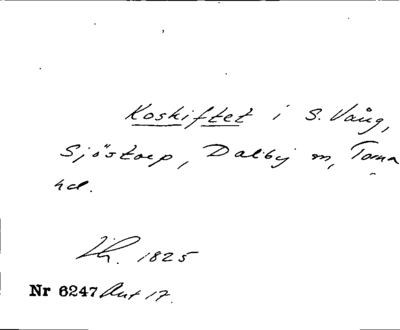 Koskiftet i S. Vång,
Sjöstorp, Dalby sn, Torna
hd.
1825
Nr 6247 Aut 17.